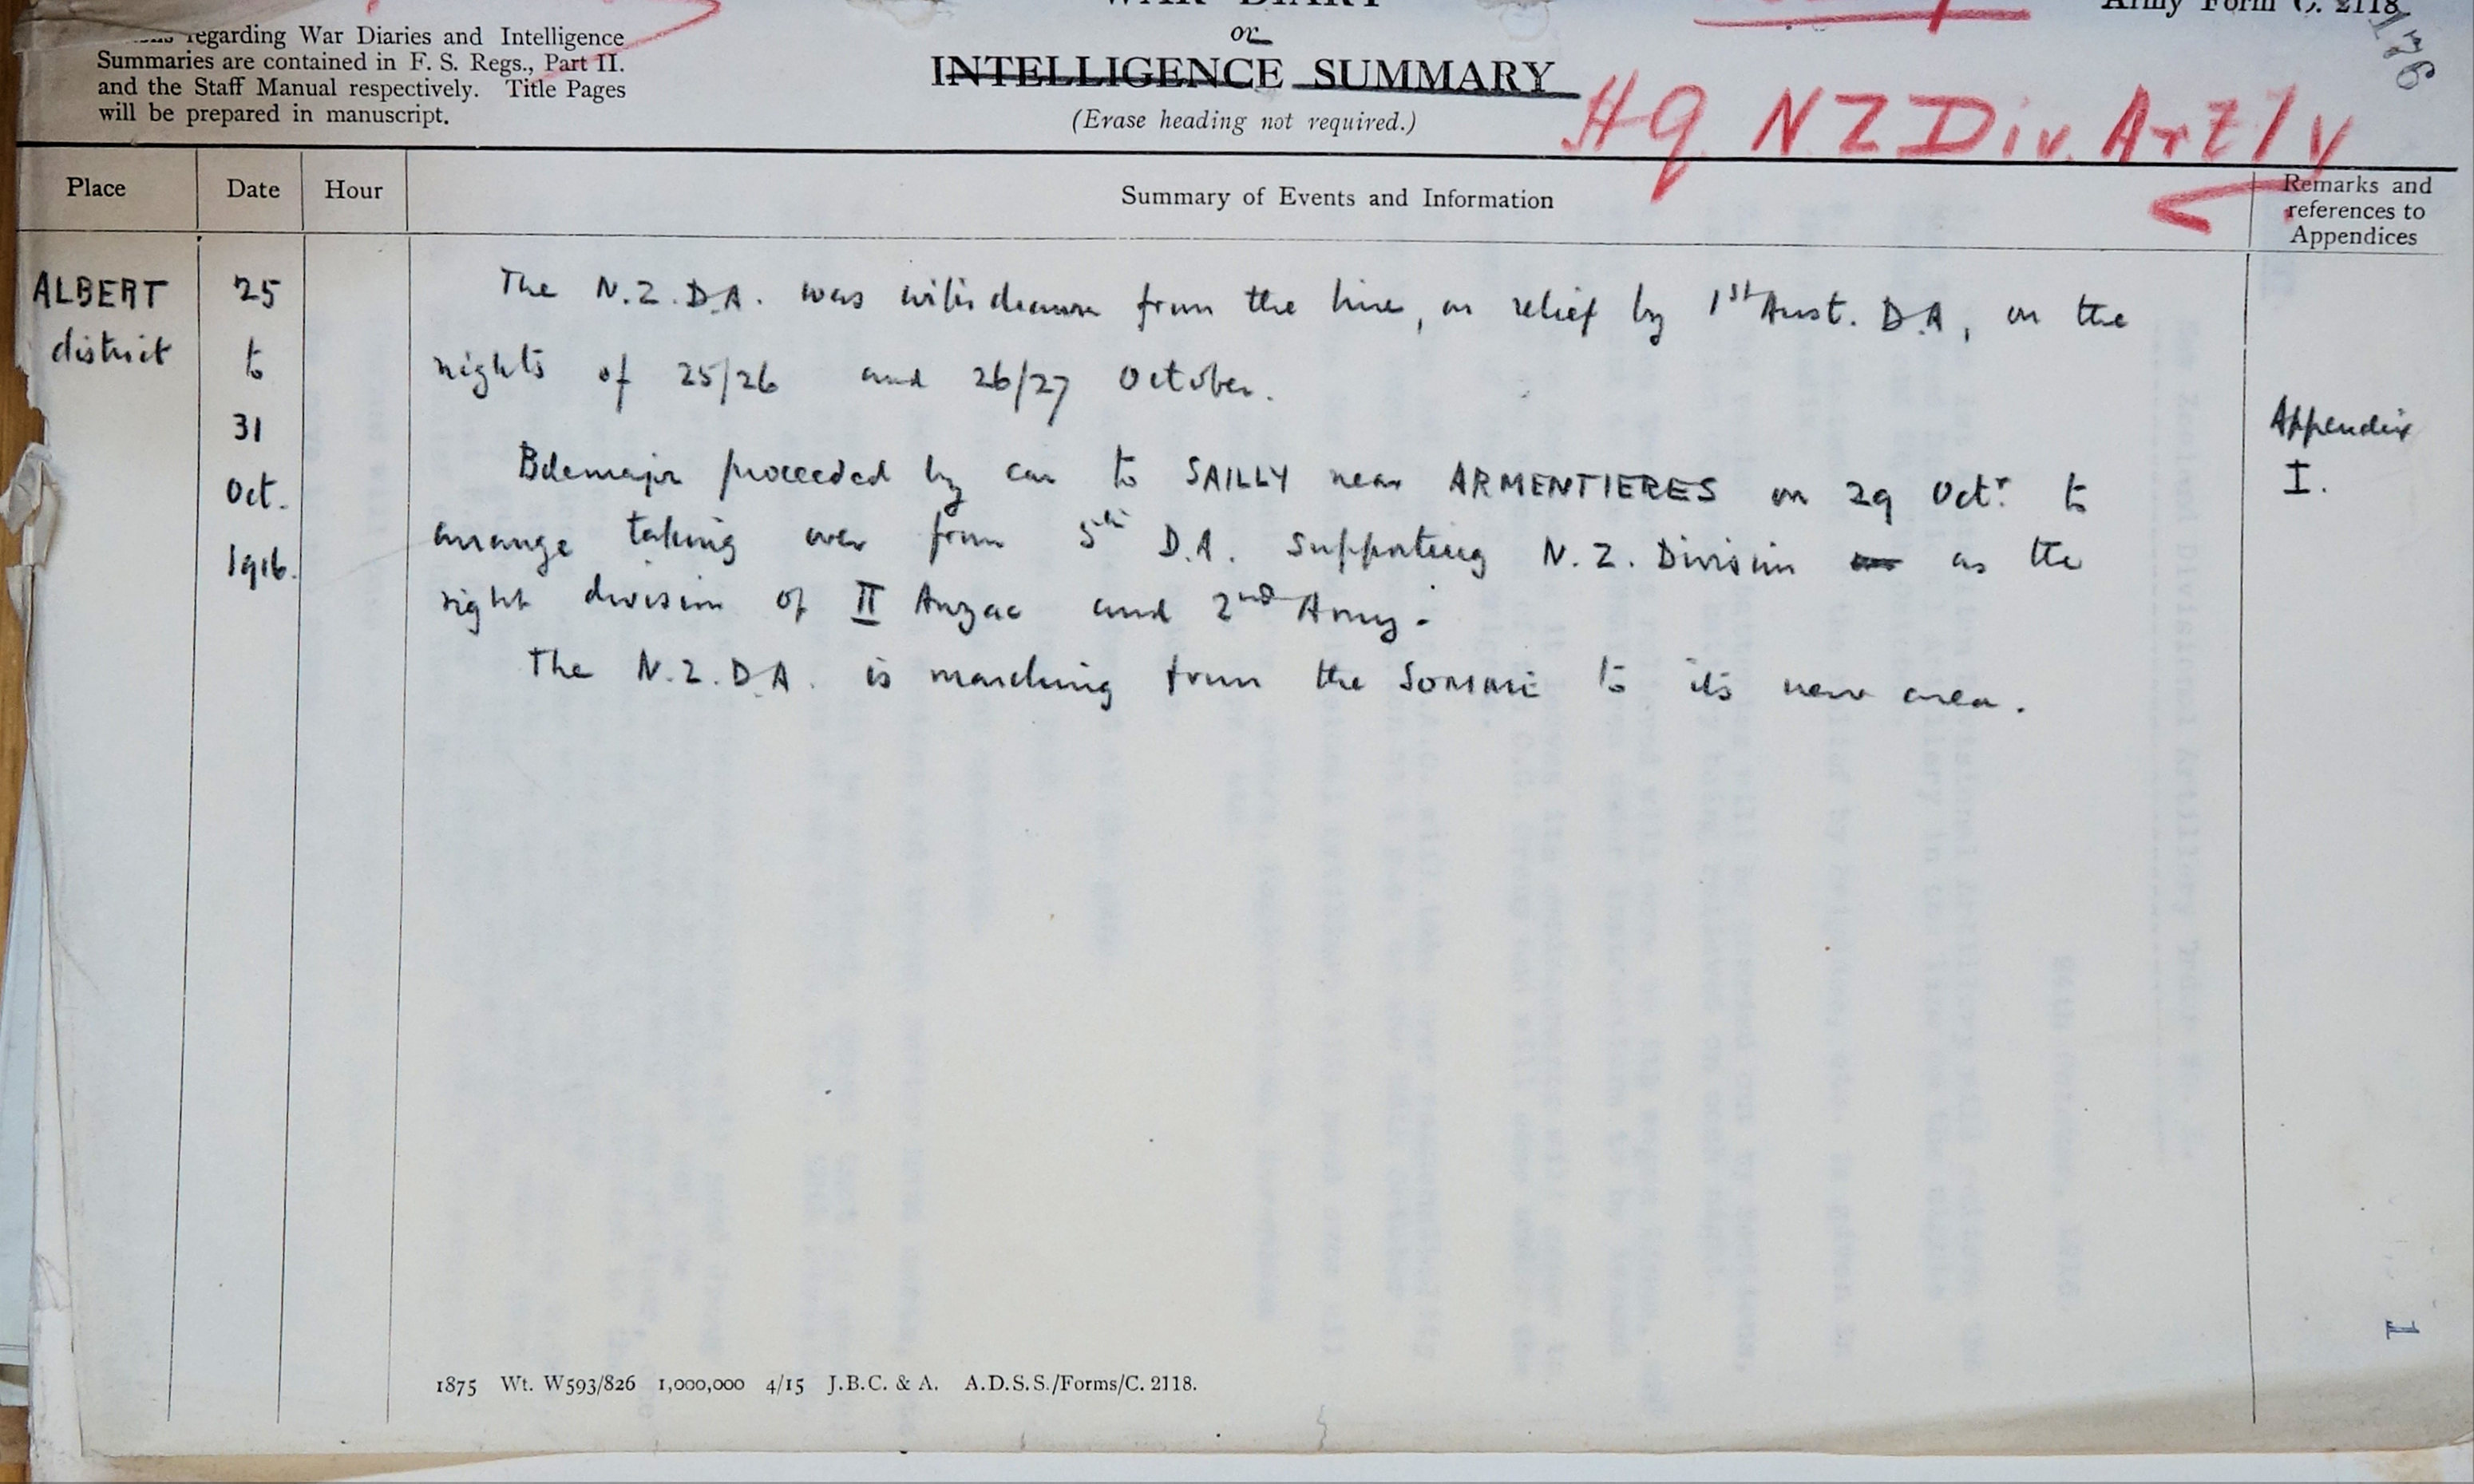 WAR DIARY
Army Form C. 2118.
176
regarding War Diaries and Intelligence
Summaries are contained in F. S. Regs., Part II.
and the Staff Manual respectively. Title Pages
will be prepared in manuscript.
or
INTELLIGENCE SUMMARY
(Erase heading not required.)
HQ NZ Div. Artly
Place Date Hour Summary of Events and Information Remarks and
references to
Appendices
ALBERT
district
25
to
31
Oct.
1916.
The N.Z.D.A. was withdrawn from the line, on relief by 1st Aust. D.A, on the
nights of 25/26 and 26/27 October.
Bdemajor proceeded by car to SAILLY near ARMENTIERES on 29 Octr. to
arrange taking over from 5th D.A. supporting N.Z. Division as the
right division of II Anzac and 2nd Army.
The N.Z.D.A. is marching from the SOMME to its new area.
Appendix
I.
1
1875 Wt. W593/826 1,000,000 4/15 J.B.C. & A. A.D.S.S./Forms/C. 2118.